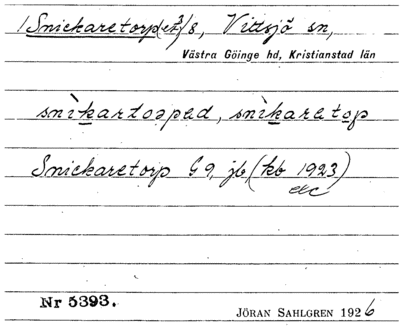 1 Snickaretorp(et) 3/8, Vittsjö sn,
Västra Göinge hd, Kristianstad län
snìkartoəpəd, snìkaretop
Snickaretorp G 9, jb, (kb 1923)
etc
Nr 5393.
JÖRAN SAHLGREN 1926